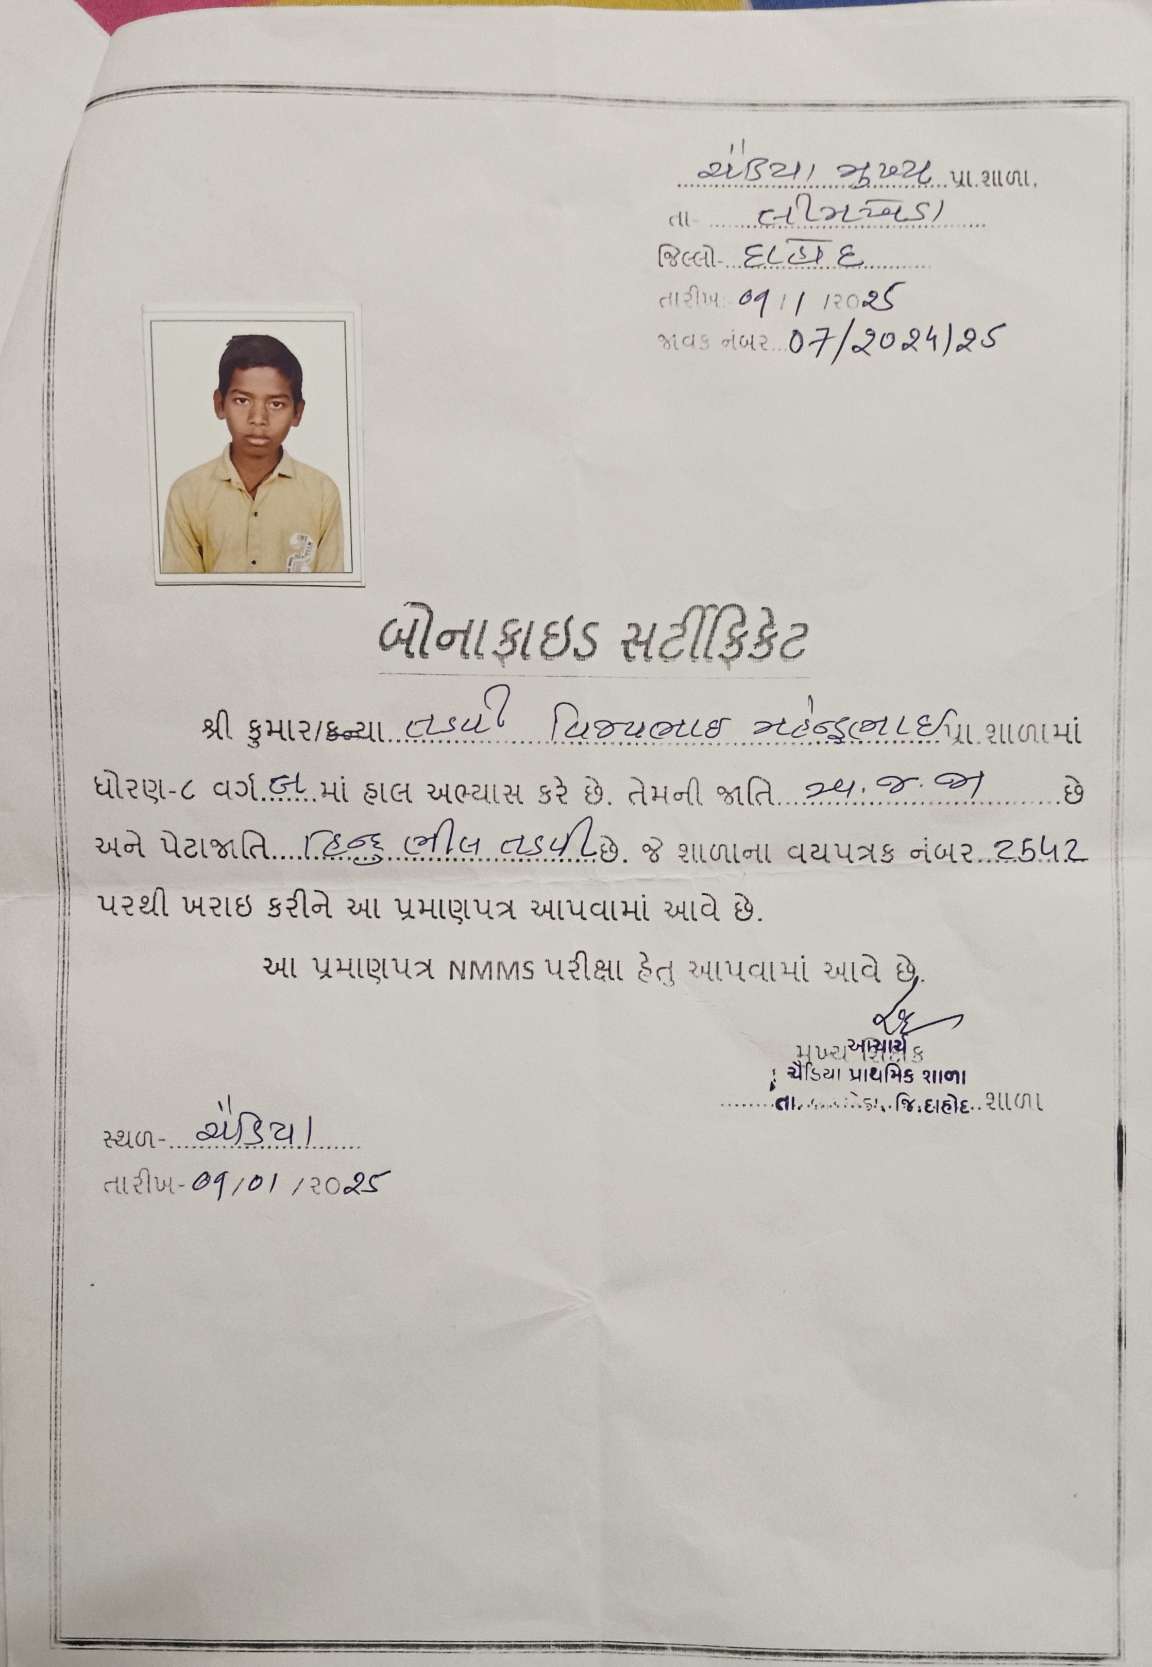 ચૈડિયા મુખ્ય પ્રા.શાળા,
તા- લીમખેડા
જિલ્લો- દાહોદ
તારીખ: 09/1/૨૦25
જાવક નંબર 07/2024/25
બોનાફાઇડ સર્ટીફિકેટ
શ્રી કુમાર/કન્યા તડવી વિજયભાઇ મહેન્દ્રભાઈ પ્રા.શાળામાં
ધોરણ-૮ વર્ગ બ માં હાલ અભ્યાસ કરે છે. તેમની જાતિ અ.જ.જા છે
અને પેટાજાતિ હિન્દુ ભીલ તડવી છે. જે શાળાના વયપત્રક નંબર 2542
પરથી ખરાઇ કરીને આ પ્રમાણપત્ર આપવામાં આવે છે.
આ પ્રમાણપત્ર NMMS પરીક્ષા હેતુ આપવામાં આવે છે.
મુખ્ય શિક્ષક
આચાર્ય
ચૈડિયા પ્રાથમિક શાળા
તા. જિ.દાહોદ શાળા
સ્થળ- ચૈડિયા
તારીખ- 09/01/૨૦25